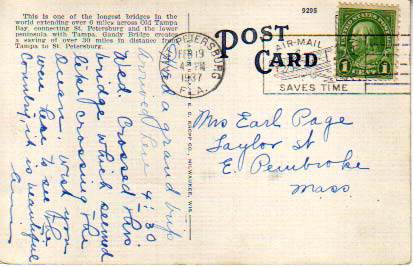 This is one of the longest bridges in the
world extending over 6 miles across Old Tampa
Bay, connecting St. Petersburg and the lower
peninsula with Tampa. Gandy Bridge effects
a saving of over 30 miles in distance from
Tampa to St. Petersburg.
9295
POST CARD
ST. PETERSBURG
FEB 19
4 - PM
1937
FLA.
AIR-MAIL
SAVES TIME
1
1
Had a grand trip
arrived here 4-30
Wed. Crossed this
bridge which seemed
like crossing the
Ocean. Wish you
were here to see the
Country, it is beautiful
E. C. KROPP CO., MILWAUKEE, WIS.
Mrs Earl Page
Taylor St
E. Pembroke
Mass